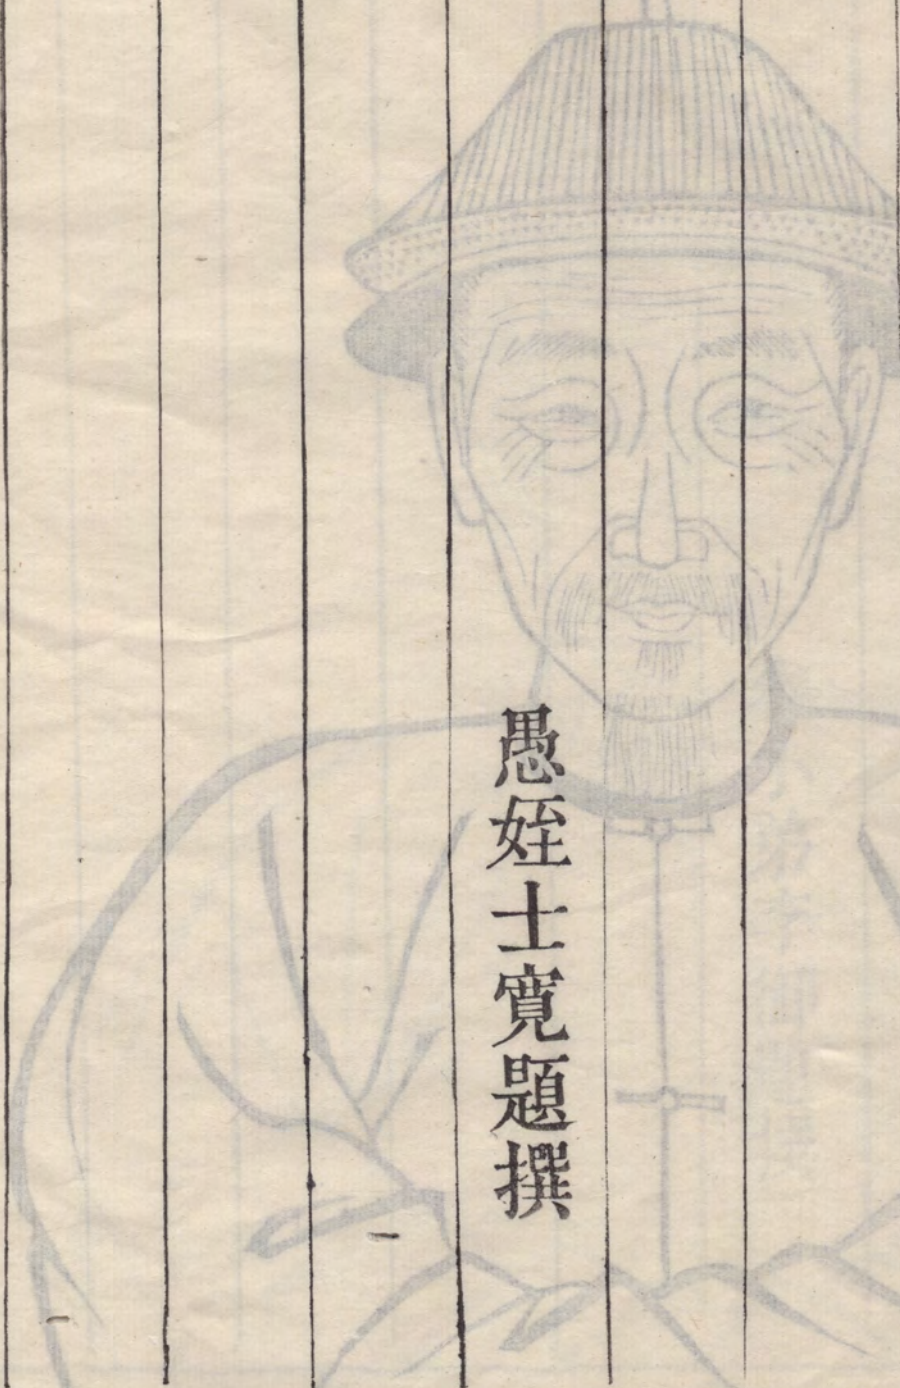 愚姪士寛題撰